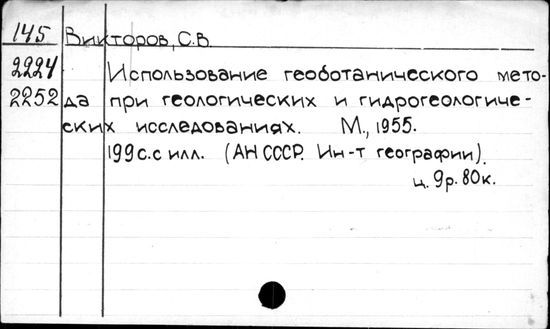 145 Викторов, С.В.
2224 Использование геоботанического мето-
2252 да при геологических и гидрогеологиче-
ских исследованиях. М., 1955.
199с.с илл. (АН СССР. Ин-т географии).
ц. 9р. 80к.